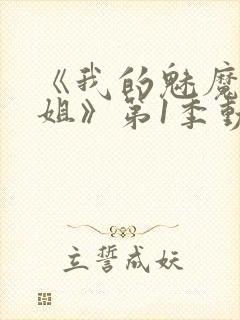 《我的魅魔
姐》第1季動
立誓成妖